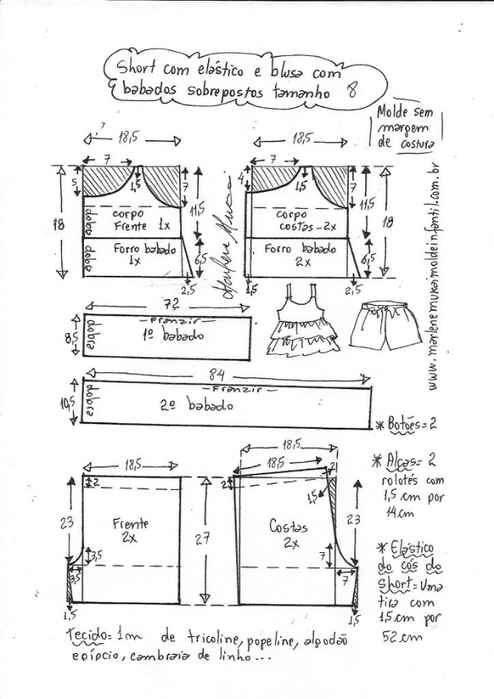 Short com elástico e blusa com
babados sobrepostos tamanho 8
Molde sem
margem
de costura
18,5
18,5
7
7
5
1,5
7
4
1,5
7
18
11,5
11,5
18
dobra
corpo
Frente 1x
corpo
costas-2x
dobra
Forro babado
1x
Forro babado
2x
6,5
6,5
2,5
1,5
2,5
Marlene Mukai
www.marlenemukaimoldeinfantil.com.br
72
8,5
dobra
-Franzir-
1º babado
84
10,5
dobra
-Franzir-
2º babado
* Botões=2
* Alças=2
rolotés com
1,5 cm por
14cm
* Elástico
do cós do
short=Uma
tira com
1,5cm por
52cm
18,5
18,5
18,5
2
2
2
1,5
23
Frente
2x
27
Costas
2x
23
3,5
3,5
7
7
1,5
1,5
Tecido=1m de tricoline, popeline, algodão
egípcio, cambraia de linho...